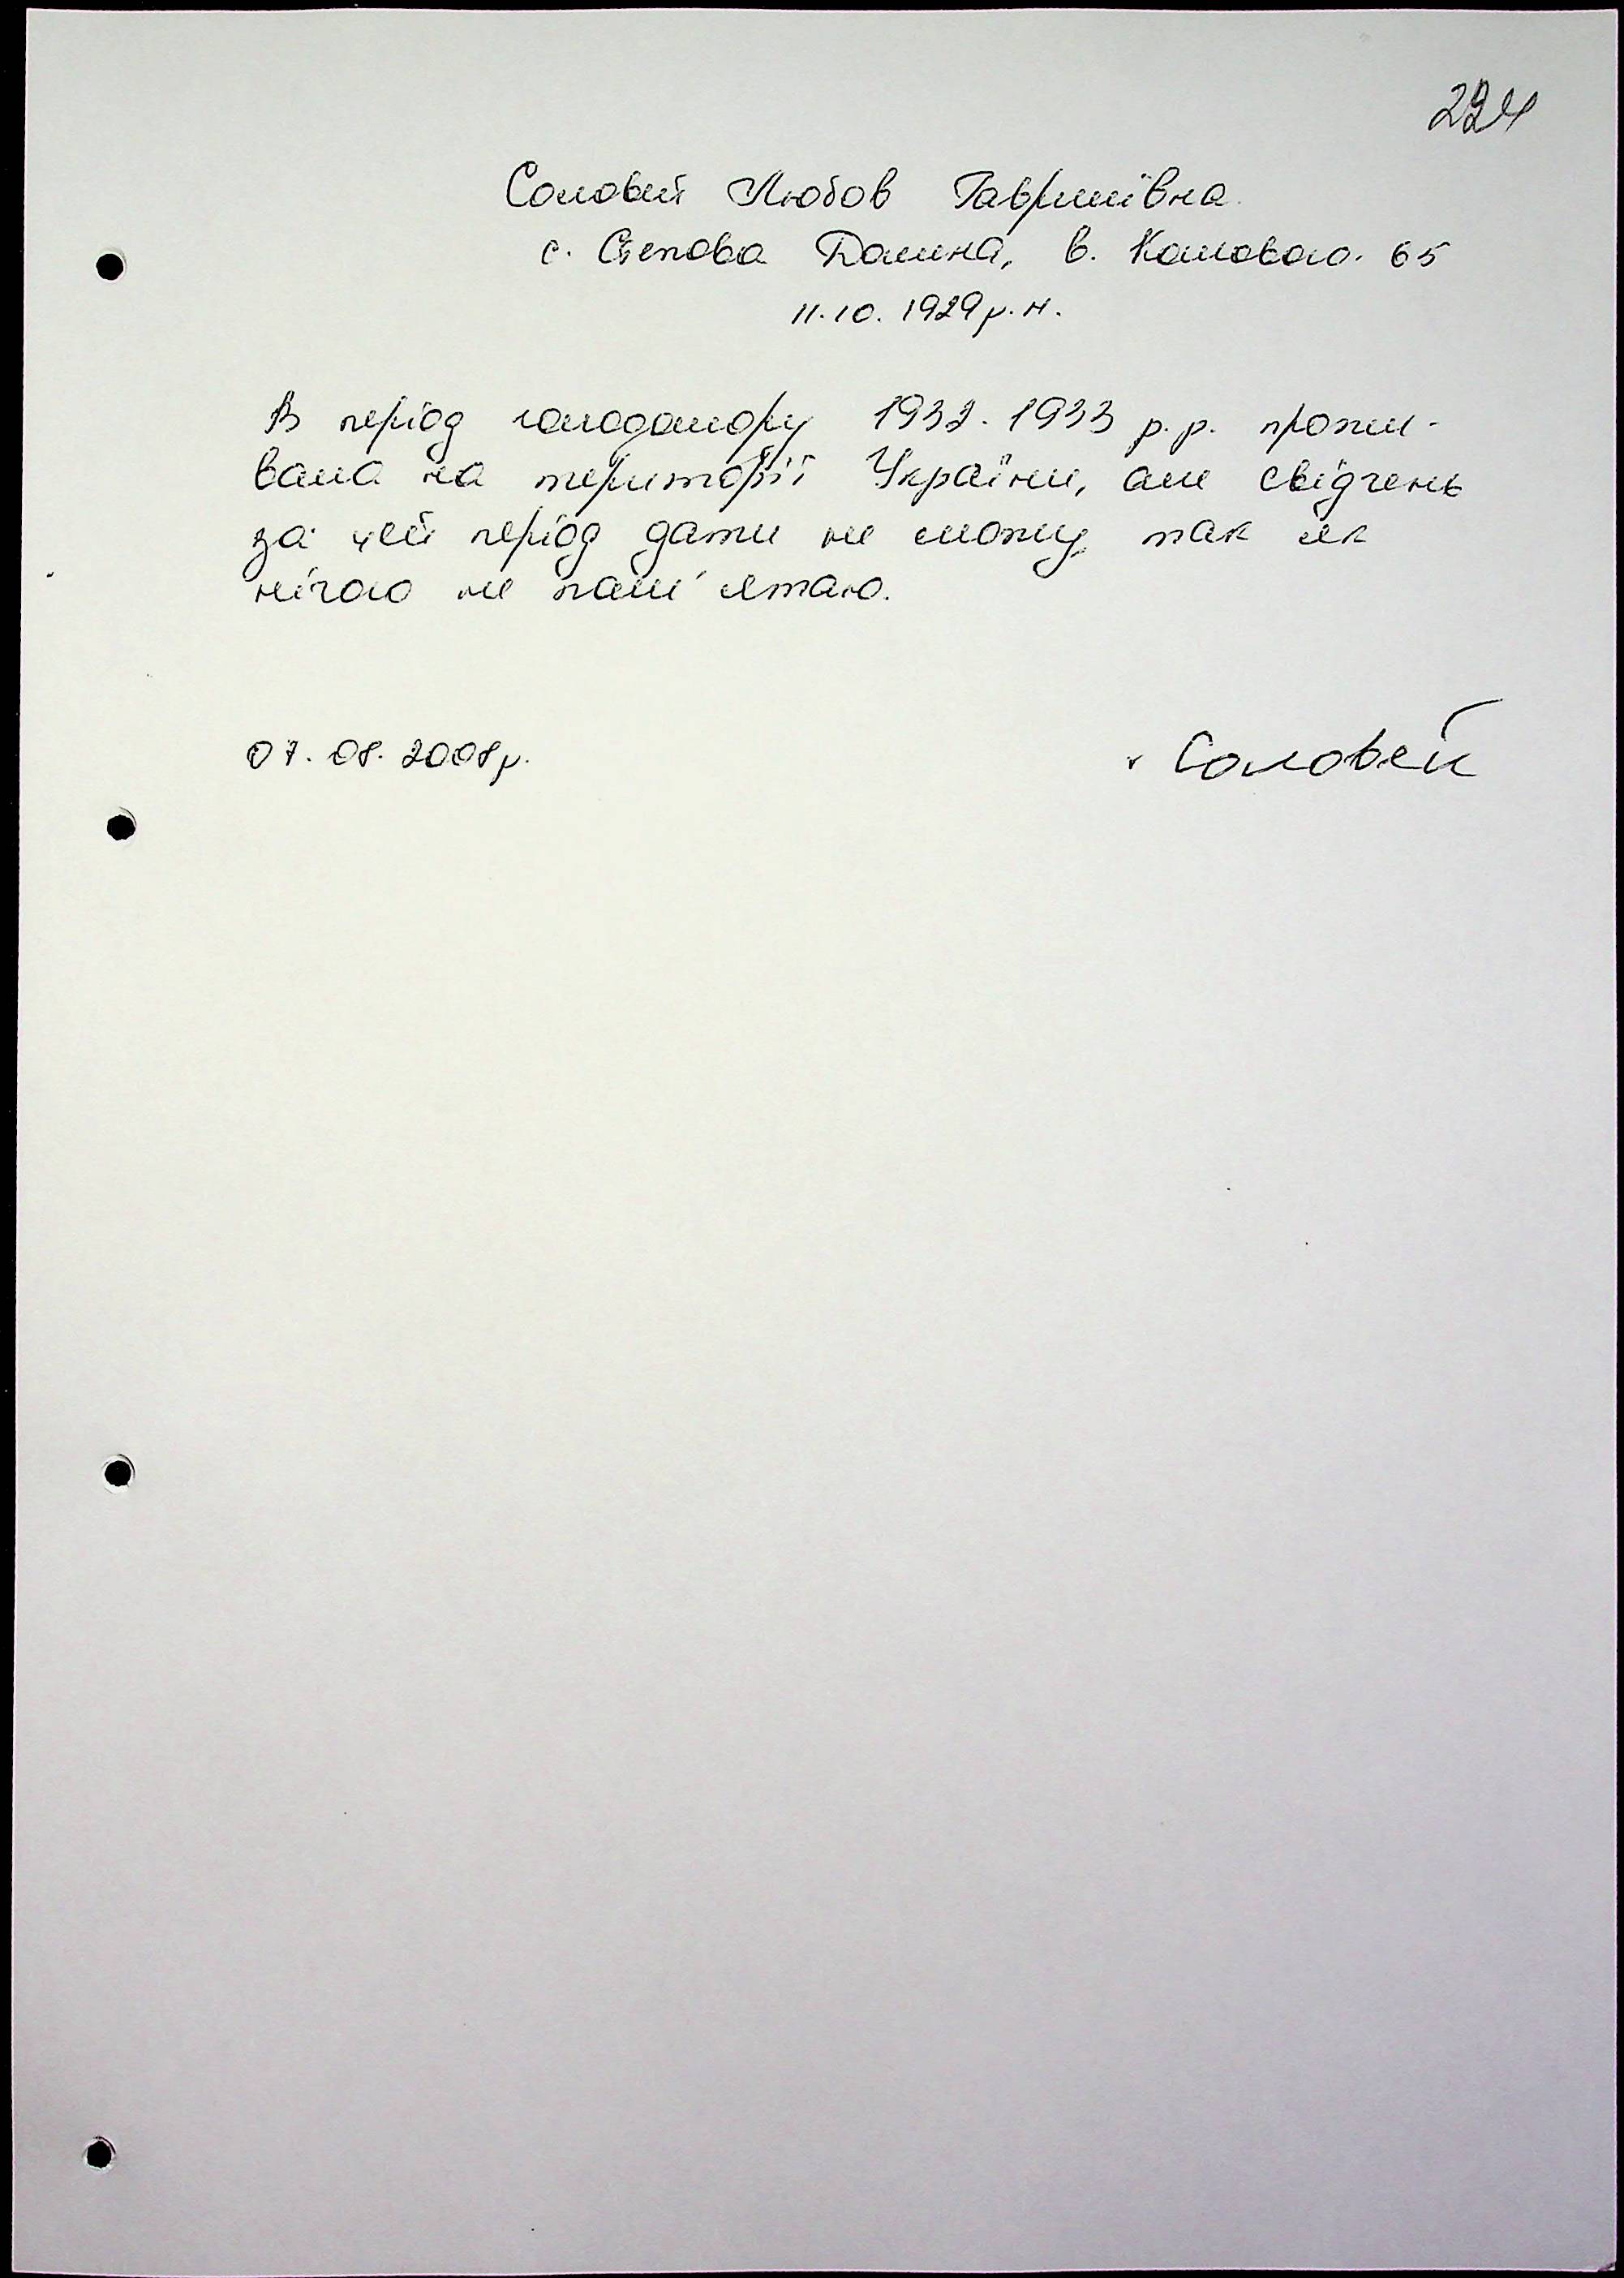 224
Соловей Любов Гаврилівна
с. Степова Долина, в. Калового 65
11.10.1929 р.н.
В період голодомору 1932-1933 р.р. прожи-
вала на території України, але свідчень
за цей період дати не можу, так як
нічого не пам'ятаю.
07.08.2008р. Соловей